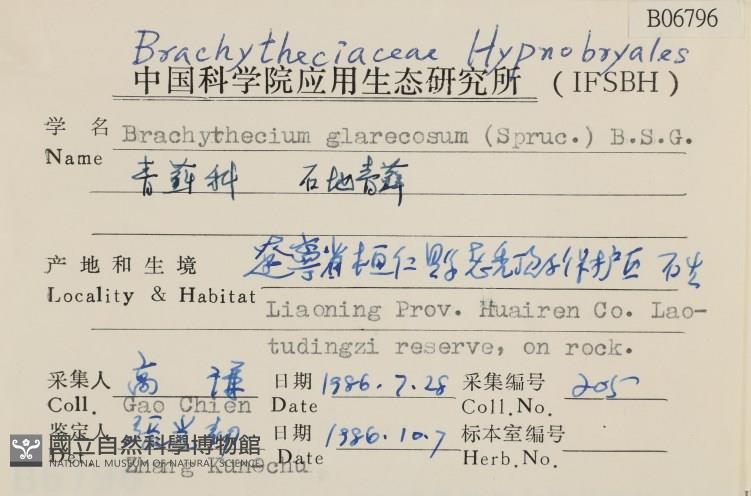 B06796
Brachytheciaceae Hypnobryales
中国科学院应用生态研究所 (IFSBH)
学名 Brachythecium glarecosum (Spruc.) B.S.G.
Name
青藓科 石地青藓
产地和生境 辽宁省桓仁县老秃顶子保护区 石生
Locality & Habitat Liaoning Prov. Huairen Co. Lao-
tudingzi reserve, on rock.
采集人 高谦 日期 1986.7.28 采集编号 205
Coll. Gao Chien Date Coll.No.
鉴定人 日期 1986.10.7 标本室编号
國立自然科學博物館
NATIONAL MUSEUM OF NATURAL SCIENCE
Det. Zhang Date Herb.No.